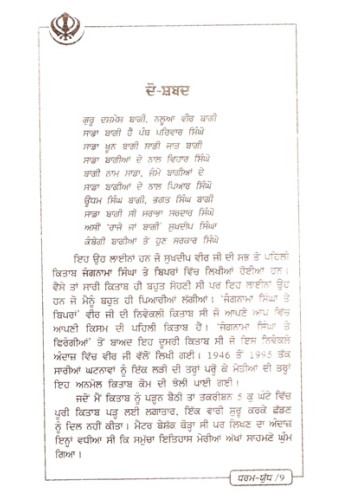 ਦੋ-ਸ਼ਬਦ
ਗੁਰੂ ਦਸਮੇਸ਼ ਬਾਗੀ, ਨਲੂਆ ਵੀਰ ਬਾਗੀ
ਸਾਡਾ ਬਾਗੀ ਹੈ ਪੰਥ ਪਰਿਵਾਰ ਸਿੰਘੋ
ਸਾਡਾ ਖੂਨ ਬਾਗੀ ਸਾਡੀ ਜਾਤ ਬਾਗੀ
ਸਾਡਾ ਬਾਗੀਆਂ ਦੇ ਨਾਲ ਵਿਹਾਰ ਸਿੰਘੋ
ਬਾਗੀ ਨਾਮ ਸਾਡਾ, ਜੰਮੇ ਬਾਗੀਆਂ ਦੇ
ਸਾਡਾ ਬਾਗੀਆਂ ਦੇ ਨਾਲ ਪਿਆਰ ਸਿੰਘੋ
ਊਧਮ ਸਿੰਘ ਬਾਗੀ, ਭਗਤ ਸਿੰਘ ਬਾਗੀ
ਸਾਡਾ ਬਾਗੀ ਸੀ ਸਰਾਭਾ ਸਰਦਾਰ ਸਿੰਘੋ
ਅਸੀਂ 'ਰਾਜੇ ਜਾਂ ਬਾਗੀ' ਸੁਖਦੀਪ ਸਿੰਘਾ
ਕੰਬੇਗੀ ਬਾਗੀਆਂ ਤੋਂ ਹੁਣ ਸਰਕਾਰ ਸਿੰਘੋ
ਇਹ ਉਹ ਲਾਈਨਾਂ ਹਨ ਜੋ ਸੁਖਦੀਪ ਵੀਰ ਜੀ ਦੀ ਸਭ ਤੋਂ ਪਹਿਲੀ
ਕਿਤਾਬ ਜੰਗਨਾਮਾ ਸਿੰਘਾਂ ਤੇ ਬਿਪਰਾਂ ਵਿੱਚ ਲਿਖੀਆਂ ਹੋਈਆਂ ਹਨ।
ਵੈਸੇ ਤਾਂ ਸਾਰੀ ਕਿਤਾਬ ਹੀ ਬਹੁਤ ਸੋਹਣੀ ਸੀ ਪਰ ਇਹ ਲਾਈਨਾਂ ਉਹ
ਹਨ ਜੋ ਮੈਨੂੰ ਬਹੁਤ ਹੀ ਪਿਆਰੀਆਂ ਲੱਗੀਆਂ। 'ਜੰਗਨਾਮਾ ਸਿੰਘਾਂ ਤੇ
ਬਿਪਰਾਂ' ਵੀਰ ਜੀ ਦੀ ਨਿਵੇਕਲੀ ਕਿਤਾਬ ਸੀ ਜੋ ਆਪਣੇ ਆਪ ਵਿੱਚ
ਆਪਣੀ ਕਿਸਮ ਦੀ ਪਹਿਲੀ ਕਿਤਾਬ ਹੈ। 'ਜੰਗਨਾਮਾ ਸਿੰਘਾਂ ਤੇ
ਫਿਰੰਗੀਆਂ' ਤੋਂ ਬਾਅਦ ਇਹ ਦੂਸਰੀ ਕਿਤਾਬ ਸੀ ਜੋ ਇਸ ਨਿਵੇਕਲੇ
ਅੰਦਾਜ਼ ਵਿੱਚ ਵੀਰ ਜੀ ਵੱਲੋਂ ਲਿਖੀ ਗਈ। 1946 ਤੋਂ 1995 ਤੱਕ
ਸਾਰੀਆਂ ਘਟਨਾਵਾਂ ਨੂੰ ਇੱਕ ਲੜੀ ਦੀ ਤਰ੍ਹਾਂ ਪਰੋ ਕੇ ਮੋਤੀਆਂ ਦੀ ਤਰ੍ਹਾਂ
ਇਹ ਅਨਮੋਲ ਕਿਤਾਬ ਕੌਮ ਦੀ ਝੋਲੀ ਪਾਈ ਗਈ।
ਜਦੋਂ ਮੈਂ ਕਿਤਾਬ ਨੂੰ ਪੜ੍ਹਨ ਬੈਠੀ ਤਾਂ ਤਕਰੀਬਨ 5 ਕੁ ਘੰਟੇ ਵਿੱਚ
ਪੂਰੀ ਕਿਤਾਬ ਪੜ੍ਹ ਲਈ ਲਗਾਤਾਰ, ਇੱਕ ਵਾਰੀ ਸ਼ੁਰੂ ਕਰਕੇ ਛੱਡਣ
ਨੂੰ ਦਿਲ ਨਹੀਂ ਕੀਤਾ। ਮੈਟਰ ਬੇਸ਼ੱਕ ਥੋੜ੍ਹਾ ਸੀ ਪਰ ਲਿਖਣ ਦਾ ਅੰਦਾਜ਼
ਇਨ੍ਹਾਂ ਵਧੀਆ ਸੀ ਕਿ ਸਮੁੱਚਾ ਇਤਿਹਾਸ ਮੇਰੀਆਂ ਅੱਖਾਂ ਸਾਹਮਣੇ ਘੁੰਮ
ਗਿਆ।
ਧਰਮ-ਯੁੱਧ /9